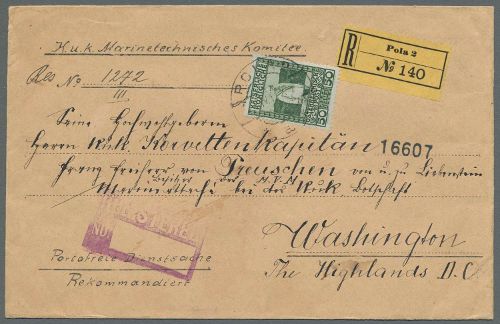 K.u.k. Marinetechnisches Komitee
Res No 1272
III
R
Pola 2
№ 140
POLA
50 50
Seine Hochwohlgeboren
Herrn K.u.k. Korvettenkapitän
16607
Franz Freiherr von Preuschen von u. zu Liebenstein
Besitzer des M.V.K
Marineattaché bei der K.u.k Botschaft
Washington
The Highlands D.C.
Portofreie Dienstsache
Rekommandiert